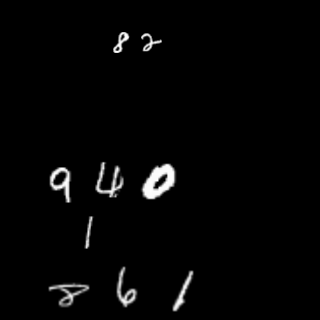 82
940
1
861